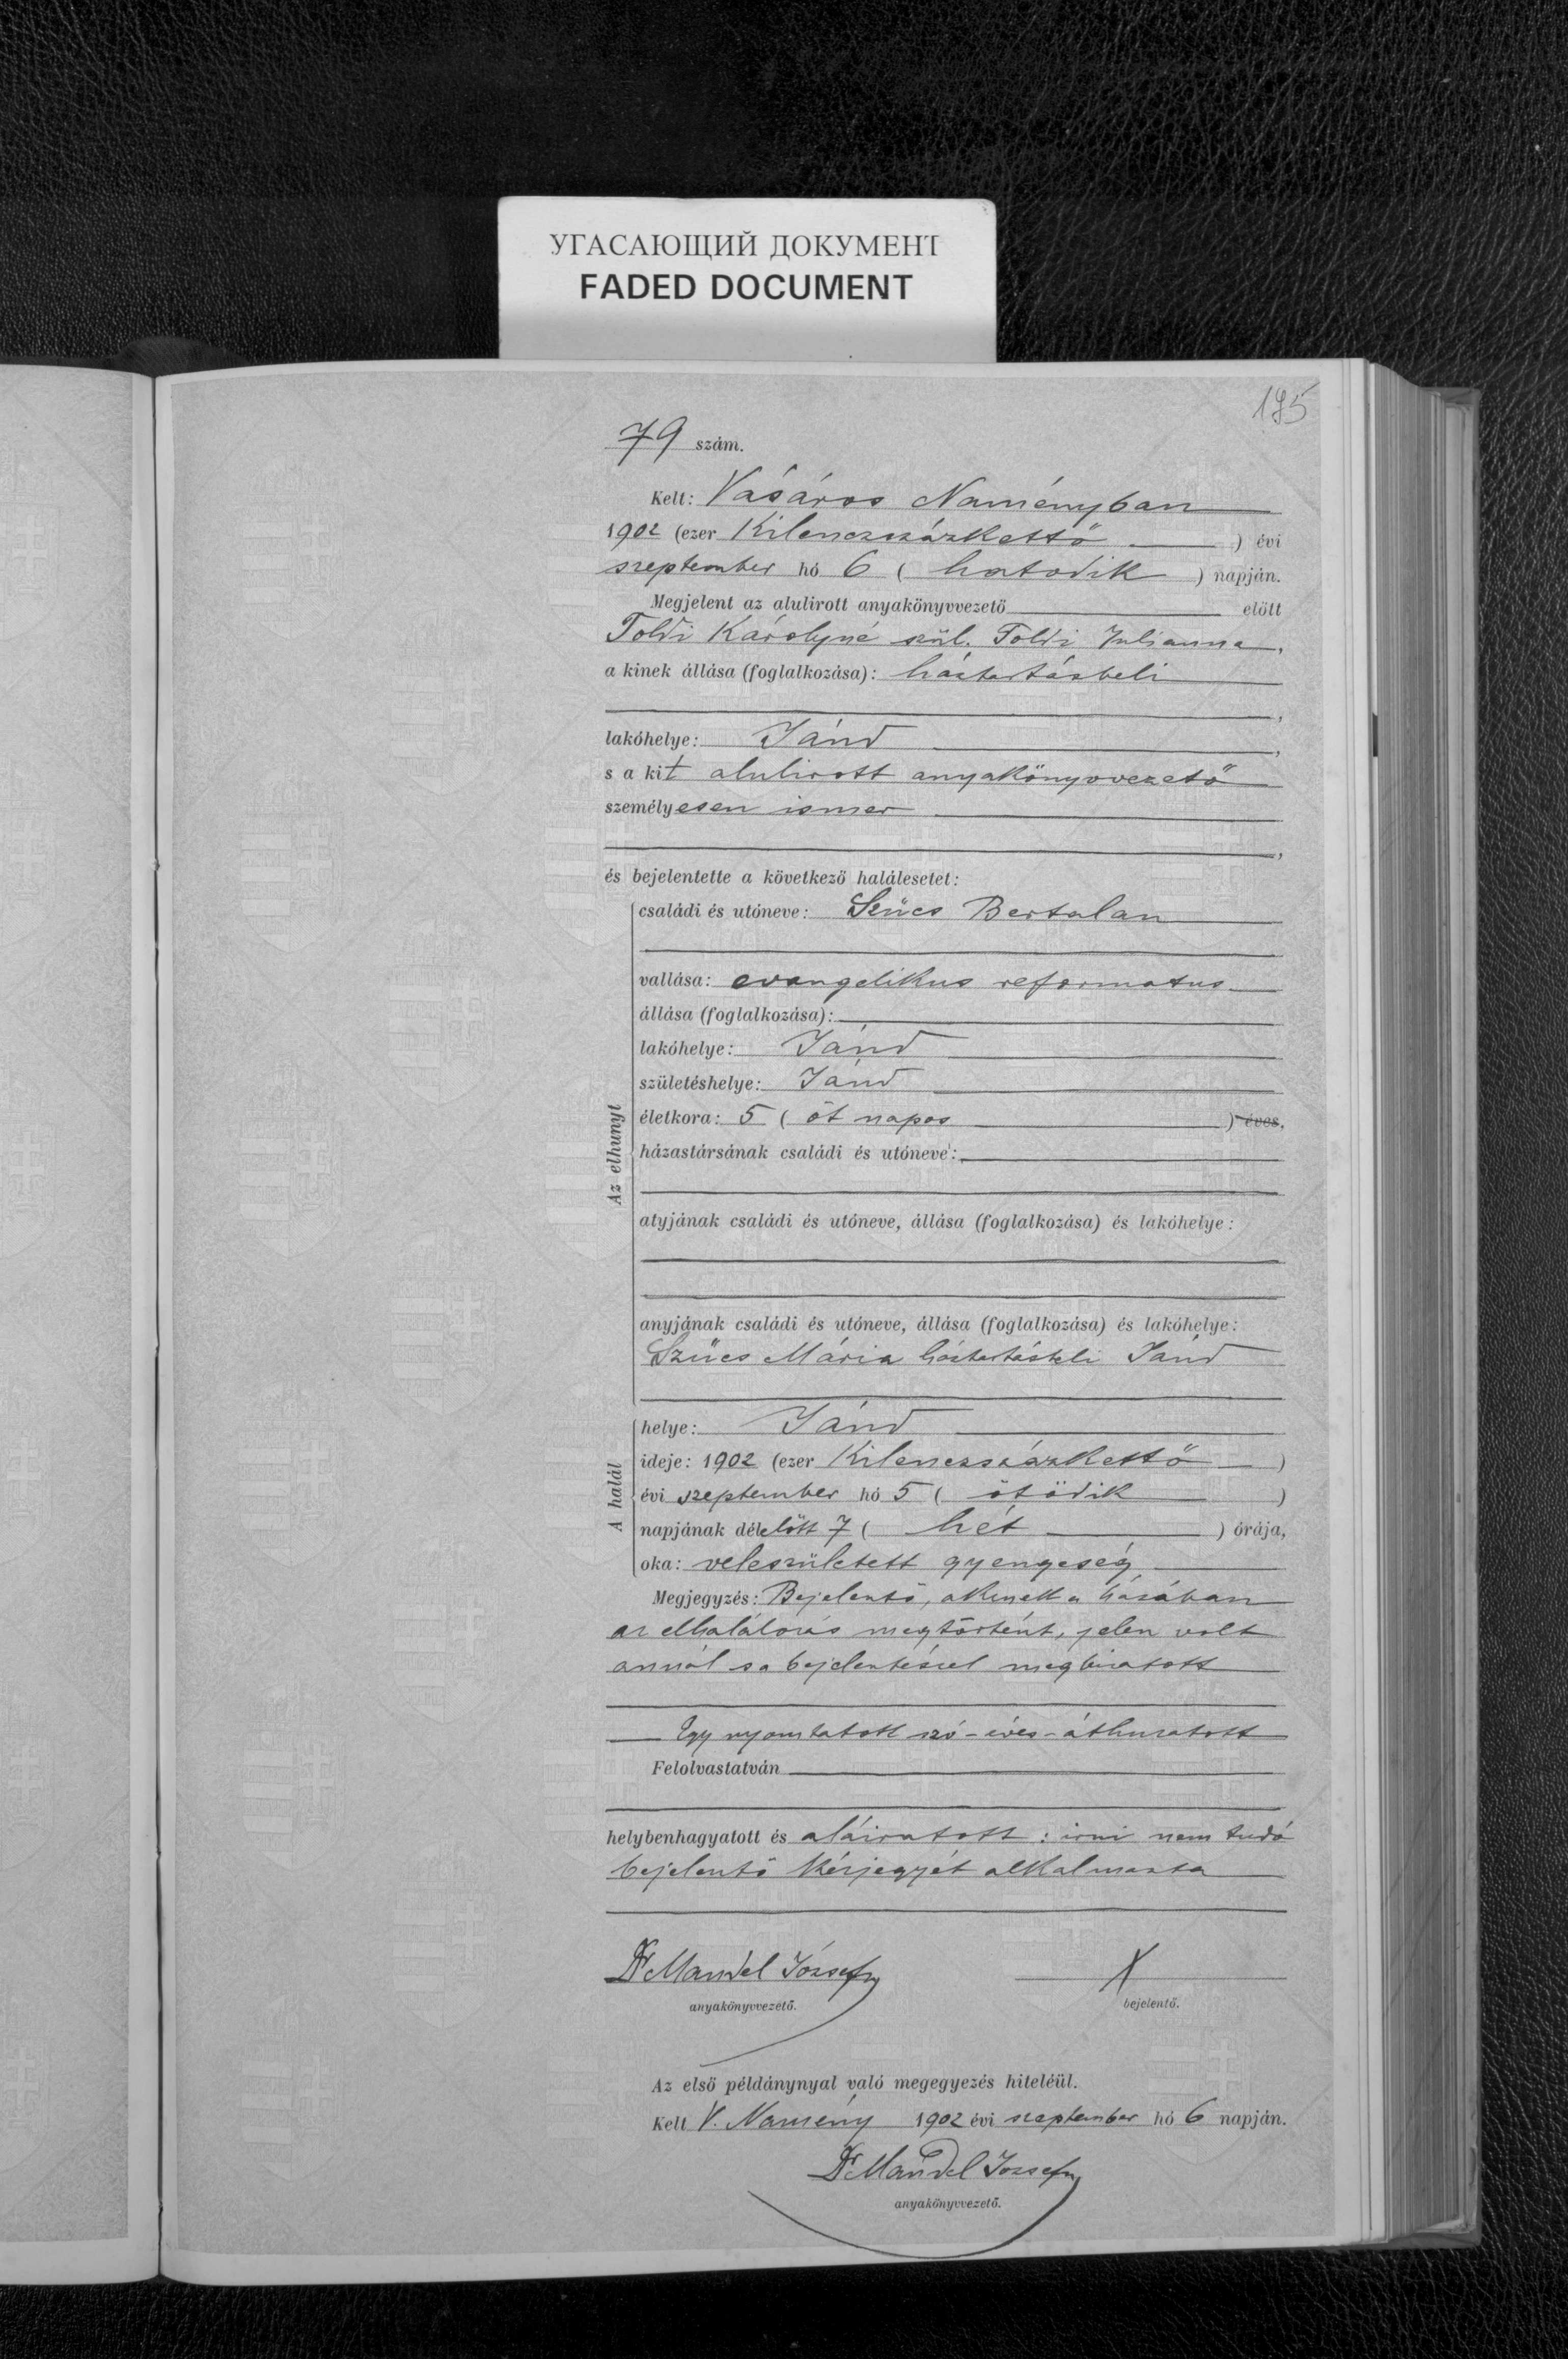 УГАСАЮЩИЙ ДОКУМЕНТ
FADED DOCUMENT
195
79 szám.
Kelt: Vásáros Naményban
1902 (ezer Kilenczszázkettő ) évi
szeptember hó 6 ( hatodik ) napján.
Megjelent az alulirott anyakönyvvezető előtt
Toldi Károlyné szül. Toldi Julianna,
a kinek állása (foglalkozása): háztartásbeli
,
lakóhelye: Jánd ,
s a kit alulirott anyakönyvvezető
személyesen ismer
,
és bejelentette a következő halálesetet:
Az elhunyt
családi és utóneve: Szücs Bertalan
vallása: evangelikus reformatus
állása (foglalkozása):
lakóhelye: Jánd
születéshelye: Jánd
életkora: 5 ( öt napos ) éves.
házastársának családi és utóneve:
atyjának családi és utóneve, állása (foglalkozása) és lakóhelye:
anyjának családi és utóneve, állása (foglalkozása) és lakóhelye:
Szücs Mária háztartásbeli Jánd
A halál
helye: Jánd
ideje: 1902 (ezer Kilenczszázkettő )
évi szeptember hó 5 ( ötödik )
napjának délelőtt 7 ( hét ) órája,
oka: veleszületett gyengeség
Megjegyzés: Bejelentő, akinek a házában
az elhalálozás megtörtént, jelen volt
annál s a bejelentéssel megbizatott
Egy nyomtatott szó - éves - áthuzatott
Felolvastatván
helybenhagyatott és aláiratott: irni nem tudó
bejelentő kézjegyét alkalmazta
Dr Mandel József
X
anyakönyvvezető.
bejelentő.
Az első példánynyal való megegyezés hiteléül.
Kelt V. Namény 1902 évi szeptember hó 6 napján.
Dr Mandel József
anyakönyvvezető.